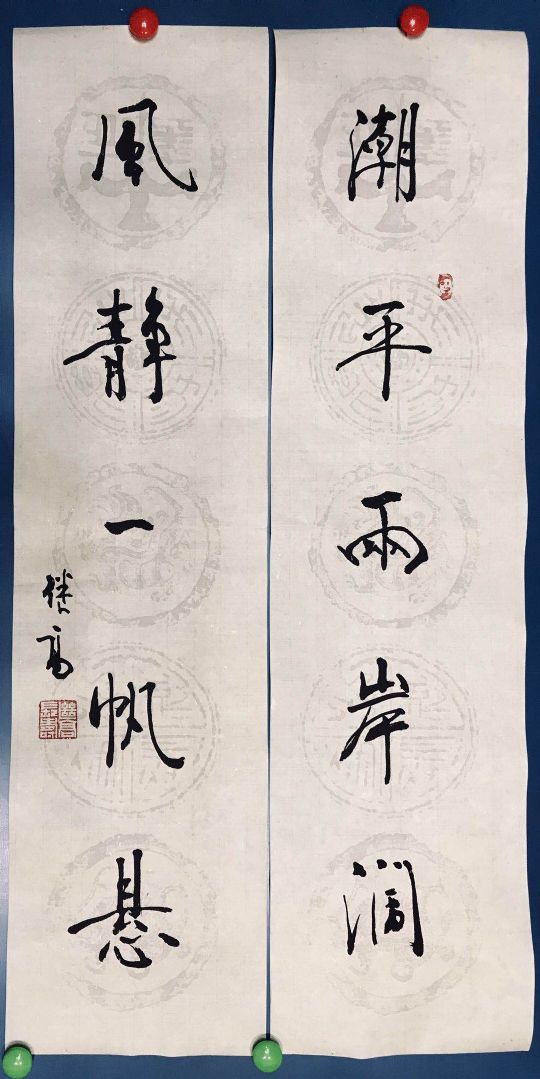 潮平兩岸濶
風静一帆悬